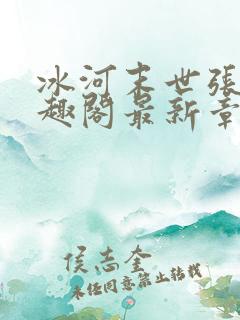 冰河末世张
趣阁最新章
侯志奎
未经同意禁止转载